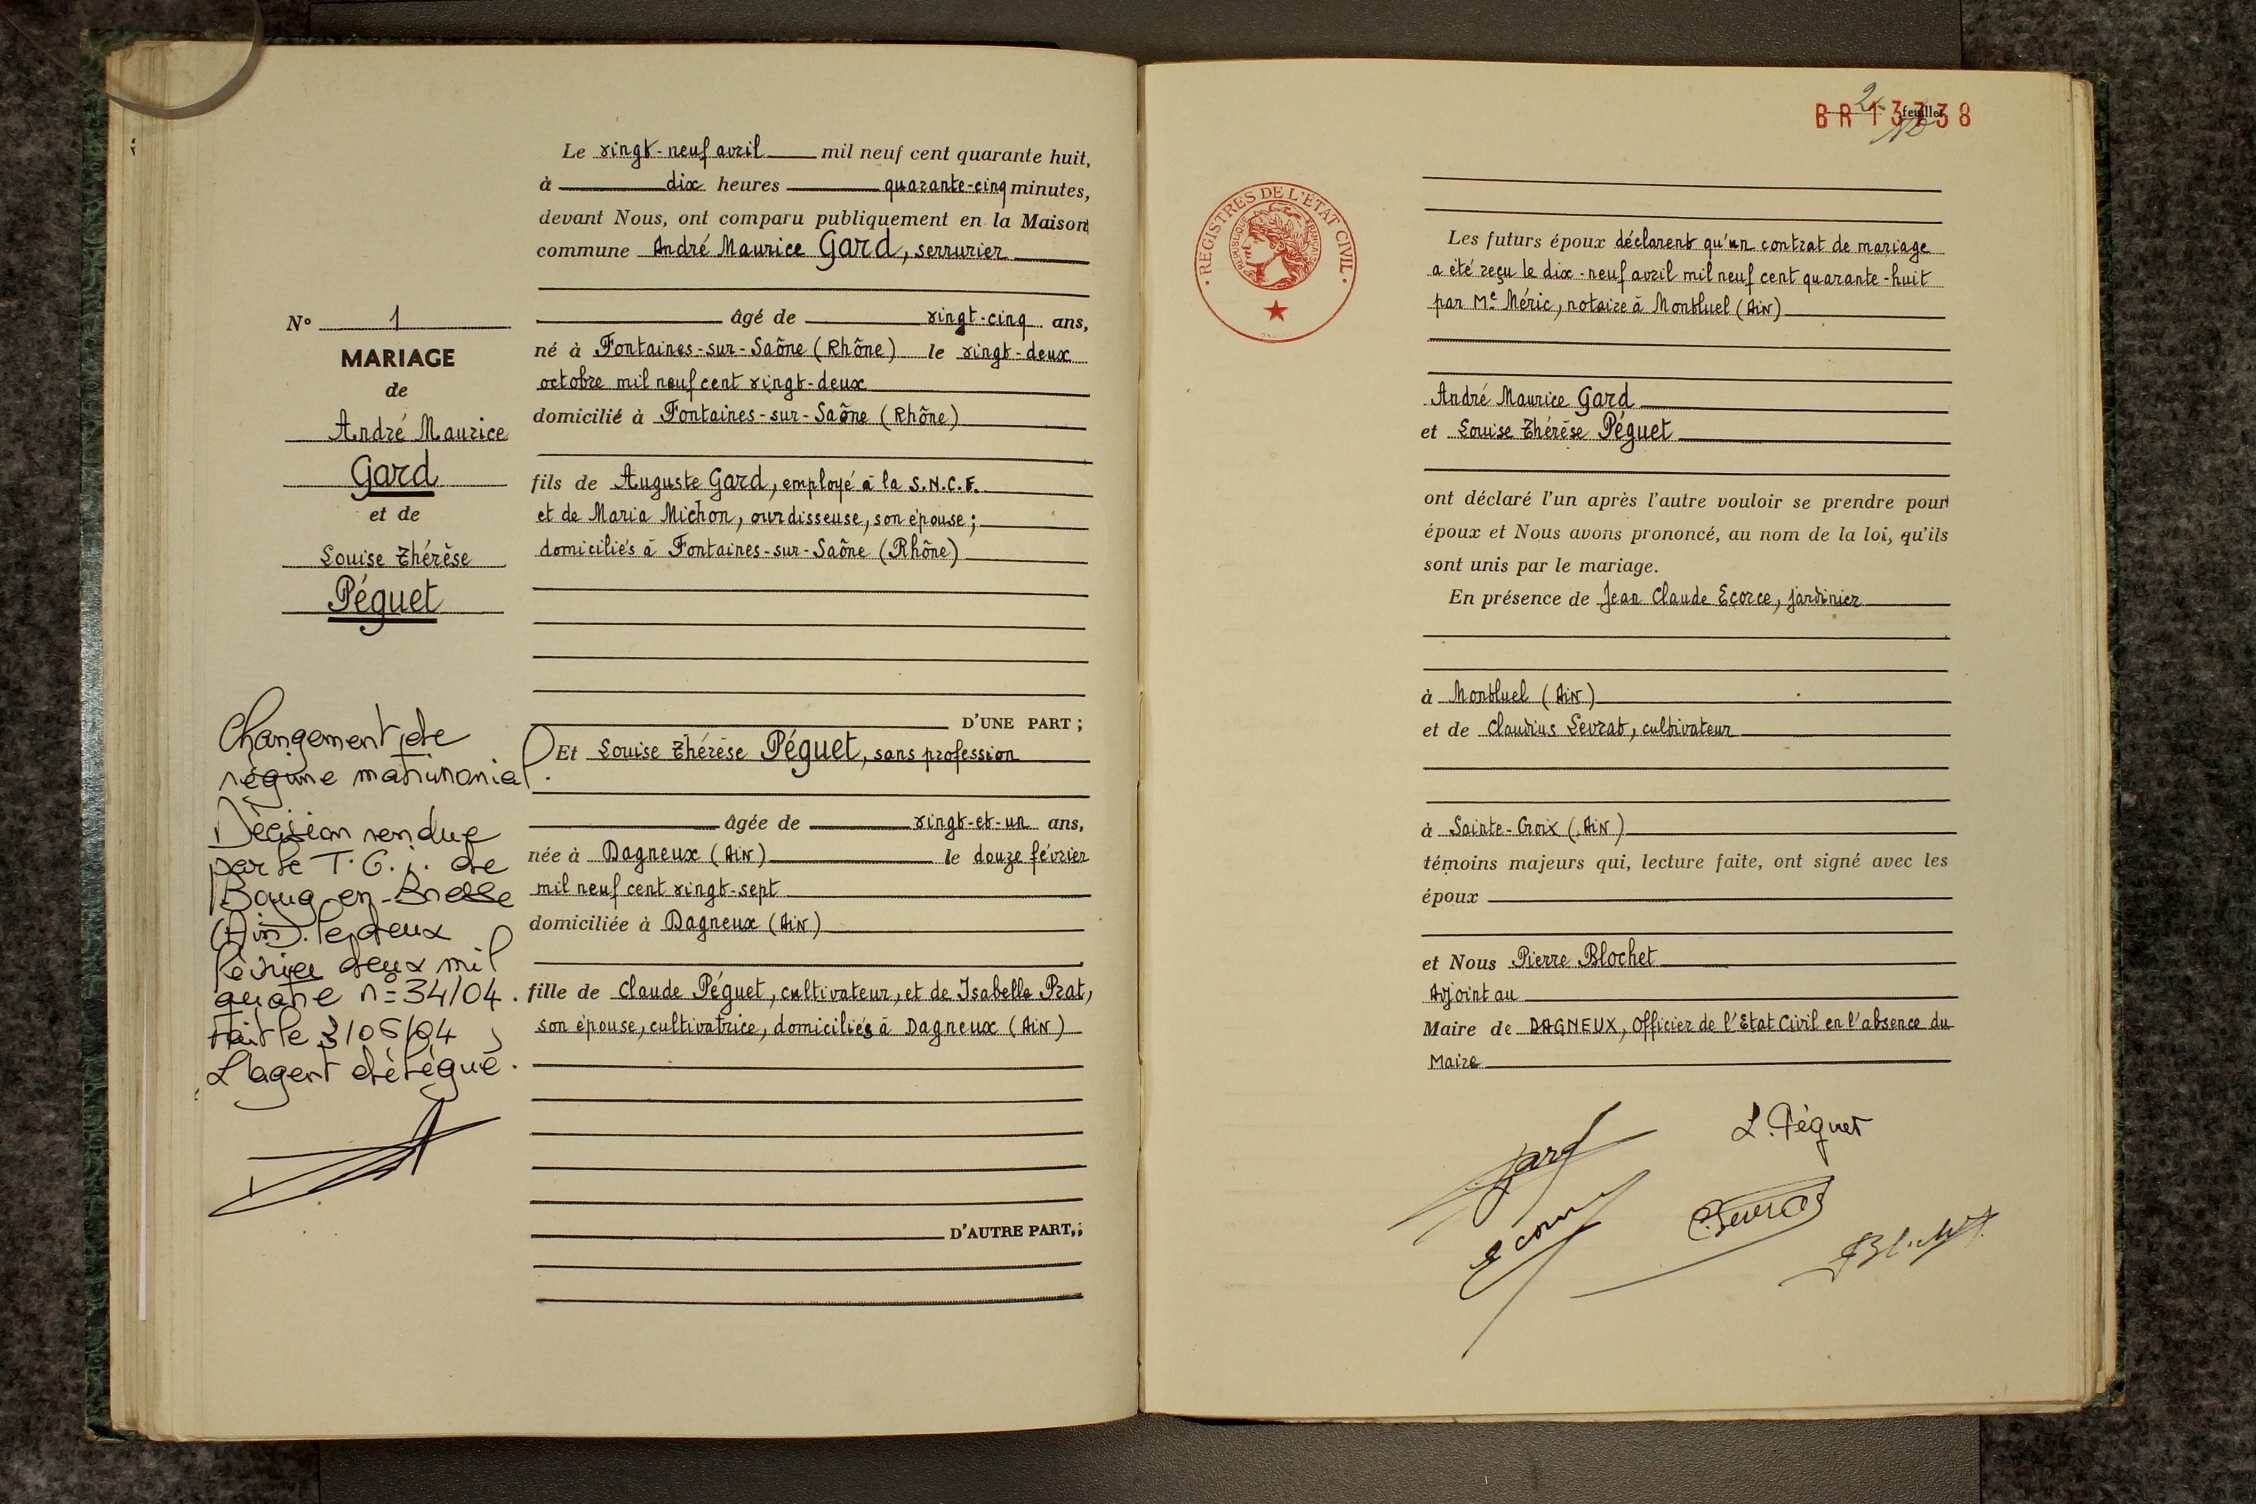 Le vingt-neuf avril mil neuf cent quarante huit,
à dix heures quarante-cinq minutes,
devant Nous, ont comparu publiquement en la Maison
commune André Maurice Gard, serrurier
âgé de vingt-cinq ans,
né à Fontaines-sur-Saône (Rhône) le vingt-deux
octobre mil neuf cent vingt-deux
domicilié à Fontaines-sur-Saône (Rhône)
fils de Auguste Gard, employé à la S.N.C.F.
et de Maria Michon, ourdisseuse, son épouse;
domiciliés à Fontaines-sur-Saône (Rhône)
D'UNE PART;
Et Louise Thérèse Péguet, sans profession
âgée de vingt-et-un ans,
née à Dagneux (Ain) le douze février
mil neuf cent vingt-sept
domiciliée à Dagneux (Ain)
fille de Claude Péguet, cultivateur, et de Isabelle Prat,
son épouse, cultivatrice, domiciliés à Dagneux (Ain)
D'AUTRE PART,;
N° 1
MARIAGE
de
André Maurice
Gard
et de
Louise Thérèse
Péguet
Changement de
régime matrimonial.
Décision rendue
par le T.G.i. de
Bourg-en-Bresse
(Ain). le deux
février deux mil
quatre n°=34/04.
Fait le 3/05/04
L'agent délégué.
2
feuillet
BR13738
REGISTRES DE L'ETAT CIVIL
REPUBLIQUE FRANÇAISE
Les futurs époux déclarent qu'un contrat de mariage
a été reçu le dix-neuf avril mil neuf cent quarante-huit
par Me Méric, notaire à Montluel (Ain)
André Maurice Gard
et Louise Thérèse Péguet
ont déclaré l'un après l'autre vouloir se prendre pour
époux et Nous avons prononcé, au nom de la loi, qu'ils
sont unis par le mariage.
En présence de Jean Claude Ecorce, jardinier
à Montluel (Ain)
et de Claudius Levrat, cultivateur
à Sainte-Croix (Ain)
témoins majeurs qui, lecture faite, ont signé avec les
époux
et Nous Pierre Blochet
Adjoint au
Maire de DAGNEUX, Officier de l'Etat Civil en l'absence du
Maire
L. Péguet
Gard
Ecorce
C. Levrat
Blochet